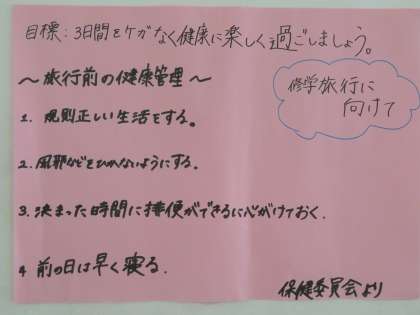 目標:3日間をケガなく健康に楽しく過ごしましょう。
修学旅行に
向けて
〜旅行前の健康管理〜
1. 規則正しい生活をする。
2. 風邪などをひかないようにする。
3. 決まった時間に排便ができるに心がけておく.
4 前の日は早く寝る.
保健委員会より